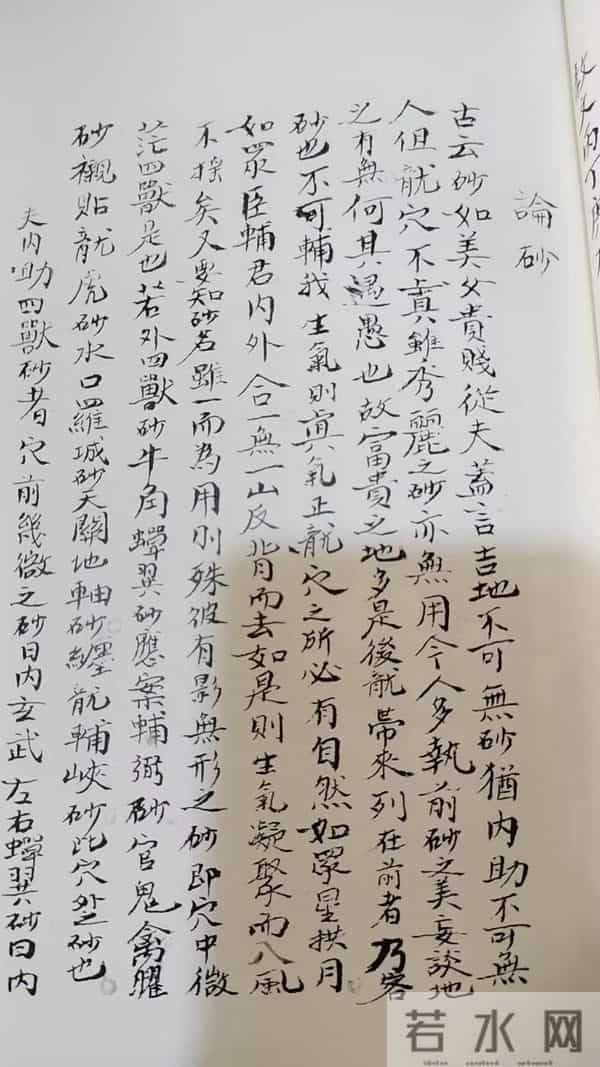 論砂
古云砂如美女貴賤從夫蓋言吉地不可無砂猶內助不可無
人但龍穴不真雖秀麗之砂亦無用今人多執前砂之美妄談地
之有無何其愚也故富貴之地多是後龍帶來列在前者乃客
砂也不可輔我生氣則真氣正龍穴之所必有自然如眾星拱月
如眾臣輔君內外合一無一山反背而去如是則生氣凝聚而八風
不搖矣又要知砂名雖一而為用則殊彼有影無形之砂即穴中微
茫四獸是也若外四獸砂牛角蟬翼砂應案輔弼砂官鬼禽曜
砂襯貼龍虎砂水口羅城砂天關地軸砂纏龍輔峽砂此穴外之砂也
夫內四獸砂者穴前幾微之砂曰內玄武左右蟬翼砂曰內
若水网